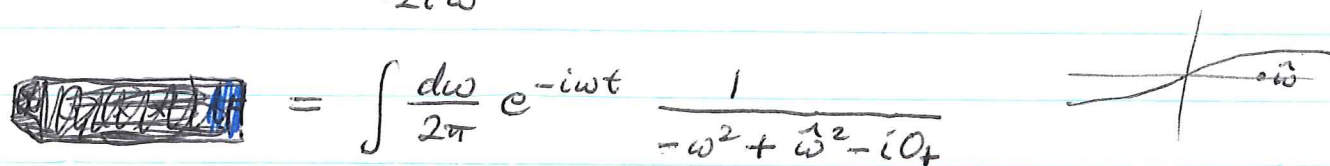 2iω
= ∫ dω/2π e^{-iωt} 1/(-ω² + ω̂² - i0₊)
ω̂